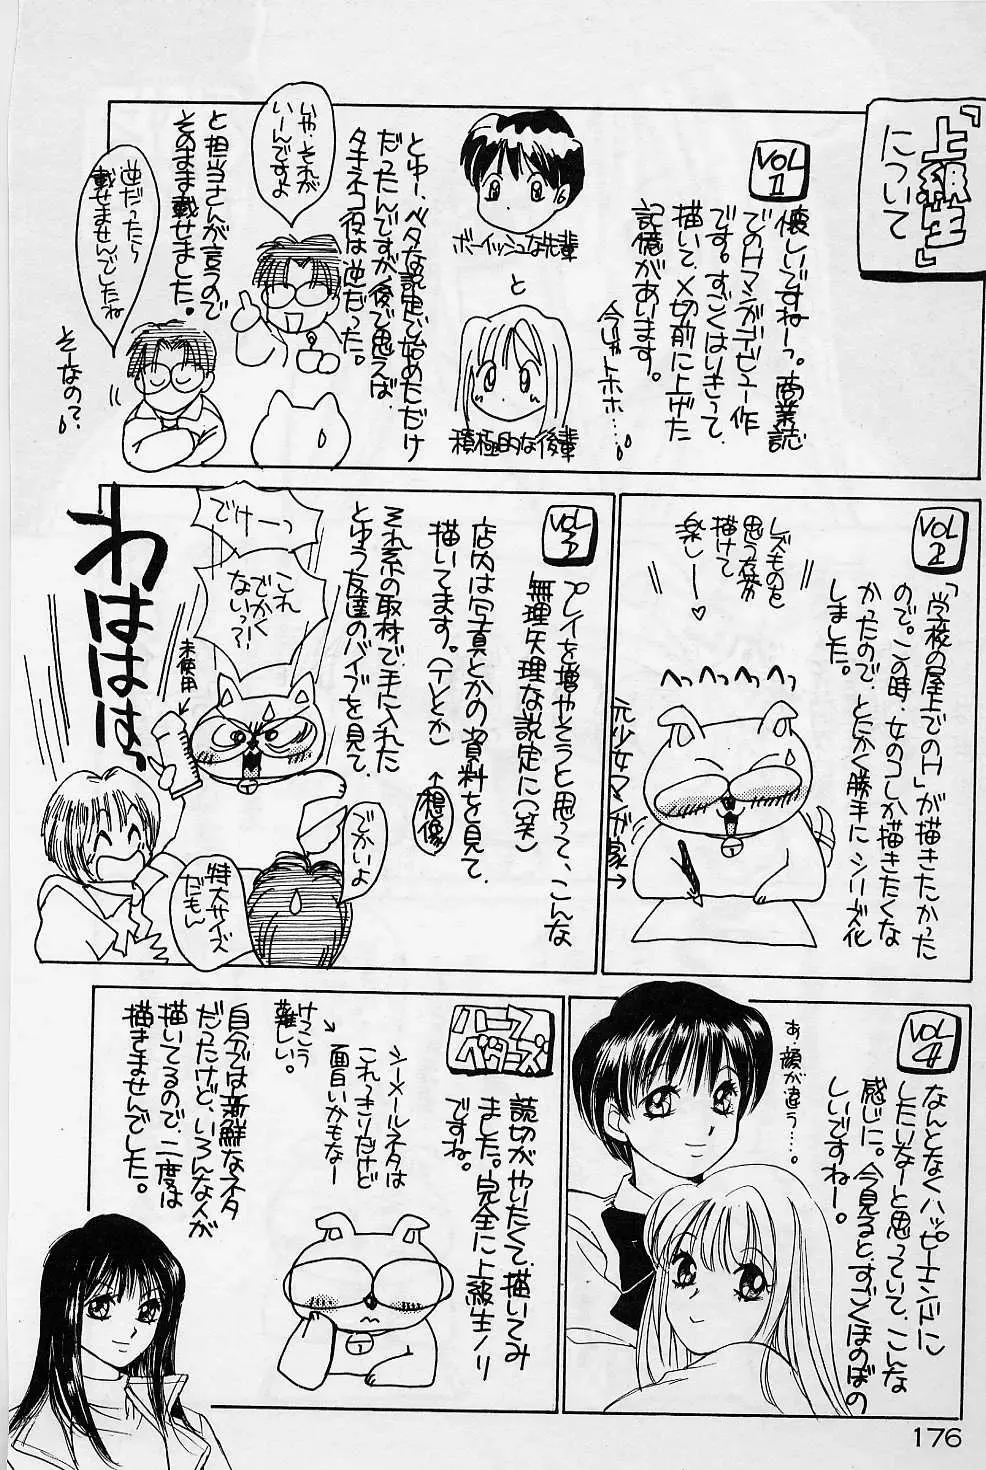 「上級生」
について
VOL
1
懐しいですねーっ。商業誌
でのHマンガデビュー作
です。すごくはりきって、
描いて、〆切前に上げた
記憶があります。
今じゃトホホ……
ボーイッシュな先輩
と
積極的な後輩
とゆー、ベタな設定で始めただけ
だったんですが、後で思えば、
タチネコ役は逆だった。
いや、それが
いーんですよ
と担当さんが言うので
そのまま載せました。
逆だったら
載せませんでしたね
そーなの?
VOL
2
「学校の屋上でのH」が描きたかった
ので。この時、女のコしか描きたくな
かったので、とにかく勝手にシリーズ化
しました。
レズものを
思う存分
描けて
楽しー♡
へっへっへっへっ
元少女マンガ家→
VOL
3
プレイを増やそうと思って、こんな
無理矢理な設定に(笑)
店内は写真とかの資料を見て、
描いてます。(Tとか)
↑想像
それ系の取材で手に入れた
とゆう友達のバイブを見て、
でけーっ
これ
でかく
ないっ?!
わはははは
未使用
でかいよ
特大サイズ
だもん
VOL
4
なんとなくハッピーエンドに
したいなーと思っていて、こんな
感じに。今見ると、すごくほのぼの
しいですねー。
あ、顔が違う…。
ハーフ
ベターズ
読切がやりたくて、描いてみ
ました。完全に上級生ノリ
ですね。
シーメールネタは
これっきりだけど
面白いかもなー
→
けっこう
難しい。
自分では新鮮なネタ
だったけど、いろんな人が
描いてるので、二度は
描きませんでした。
176